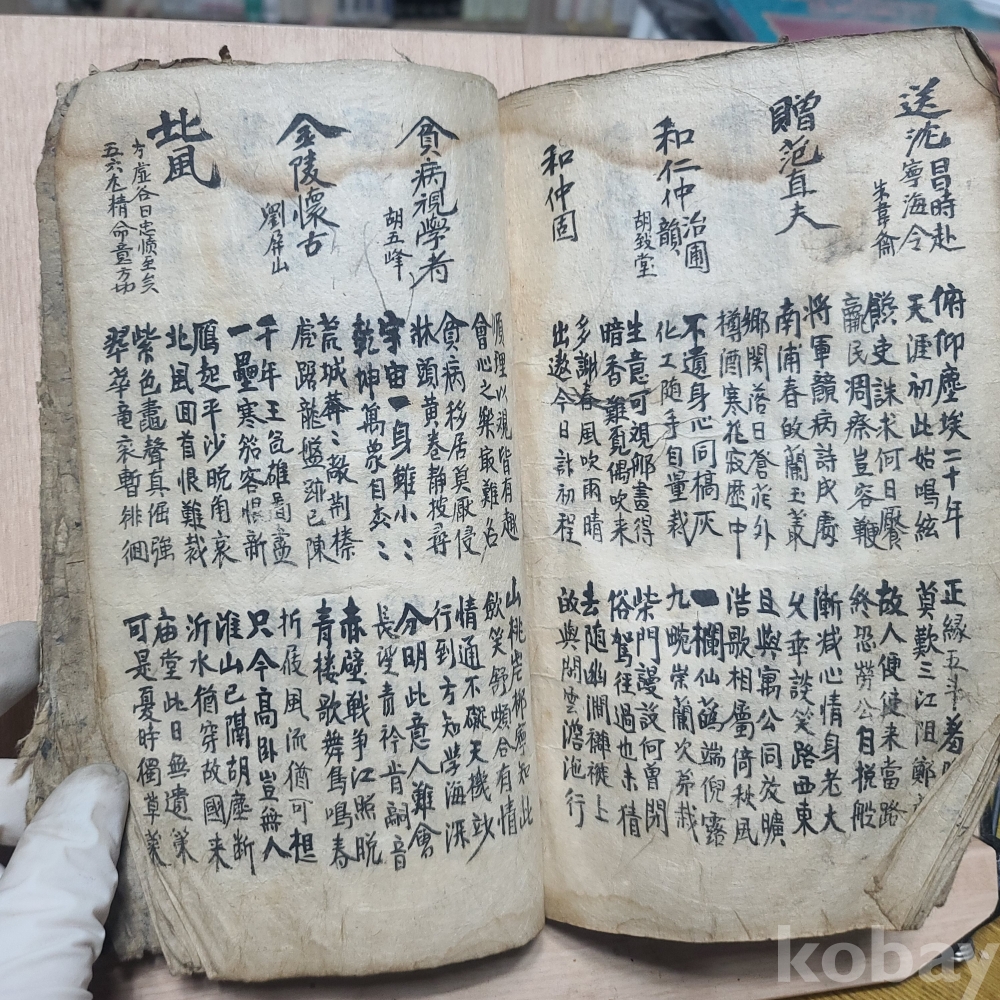 送沈昌時赴
寧海令
朱韋齋
俯仰塵埃二十年
正緣五斗著
天涯初此始鳴絃
莫歎三江阻鄭
饑吏誅求何日饜
故人便使来當路
羸民凋瘵豈容鞭
終恐勞公自挽船
贈范直夫
將軍競病詩成處
漸减心情身老大
南浦春故蘭玉叢
父乖談笑路西東
鄉関落日蒼茫外
且與寓公同放曠
樽酒寒花寂歴中
浩歌相屬倚秋風
和仁仲治圃韻
胡致堂
不遺身心同槁灰
一欄仙蘤端倪露
化工随手自量栽
九畹崇蘭次第栽
生意可視 畫得
柴門謾設何曽閉
暗香難覓偶吹来
俗駕徑過也未猜
和仲固
多謝春風吹雨晴
去随幽澗 褷上
出遨今日詐初程
故與閒雲澹沲行
順理以視皆有趣
山桃岩 寧知此
會心之樂最難名
飲笑舒嚬各有情
貧病視學者
胡五峰
貧病移居莫厭侵
情通不礙天機妙
牀頭黄卷静披尋
行到方知學海深
宇宙一身雖小〻
分明此意人難會
乾坤萬衆自 〻
長望青衿肯嗣音
金陵懷古
劉屏山
荒城莽〻蔽荆榛
赤壁戦争江照晩
虎踞龍盤跡已陳
青楼歌舞馬鳴春
千年王氣雄啚盡
折屐風流猶可想
一壘寒笳客恨新
只今高卧豈無人
北風
方虚谷曰忠憤至矣
五六尤精命意方切
雁起平沙晩角哀
淮山已隔胡塵断
北風回首恨難裁
沂水猶穿故國来
紫色 聲真倔强
庙堂此日無遺策
翠華 哀暫徘徊
可是憂時獨草莱
kobay